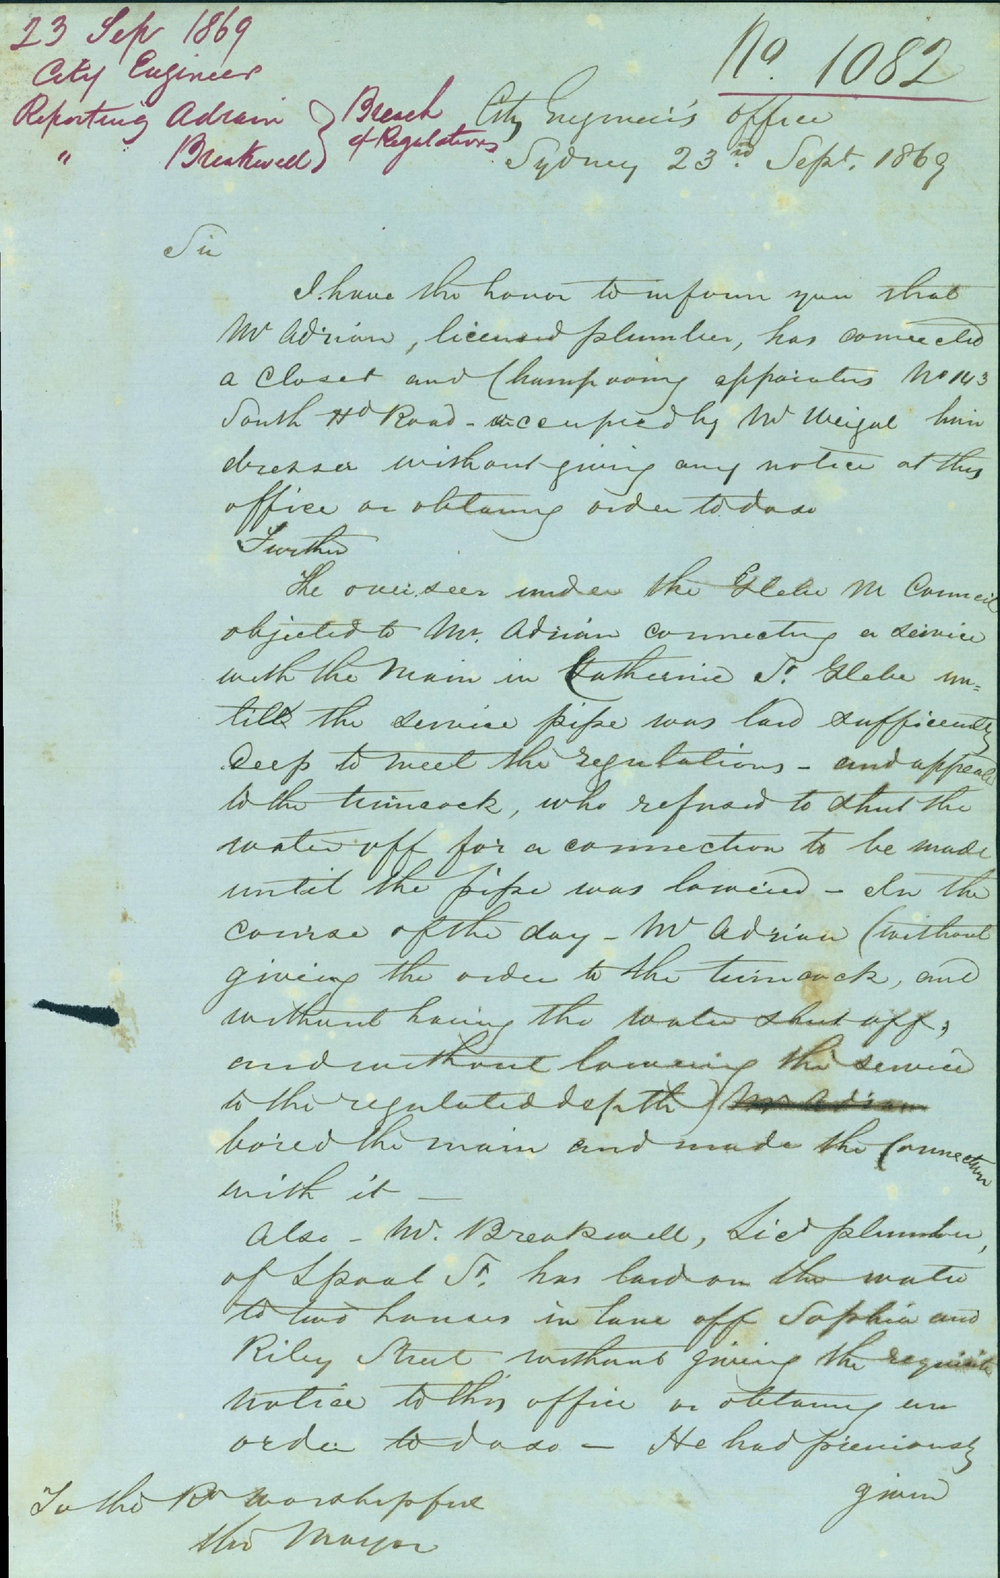 23 Sep 1869
City Engineer
Reporting Adrain } Breach
" Breakwell } of Regulations
No. 1082
City Engineer's office
Sydney 23rd Sept. 1869
Sir
I have the honor to inform you that
Mr Adrian, licensed plumber, has connected
a closet and Champooing apparatus No 143
South Hd Road - occupied by Mr Weigal hair
dresser without giving any notice at this
office or obtaining order to do so
Further
The overseer under the Glebe M Council
objected to Mr. Adrian connecting a service
with the Main in Catherine St. Glebe un=
till the service pipe was laid sufficiently
deep to meet the regulations - and appeald
to the turncock, who refused to shut the
water off for a connection to be made
until the pipe was lowered - In the
course of the day - Mr Adrian (without
giving the order to the turncock, and
without having the water shut off,
and without lowering the service
to the regulated depth) Mr Adrian
bored the main and made the Connection
with it -
Also - Mr. Breakwell, Licd plumber,
of Streat St. has laid on the water
to two houses in lane off Sophia and
Riley Street without giving the requisite
notice to this office or obtaining an
order to do so - He had previously
given
To the Rt Worshipful
the Mayor